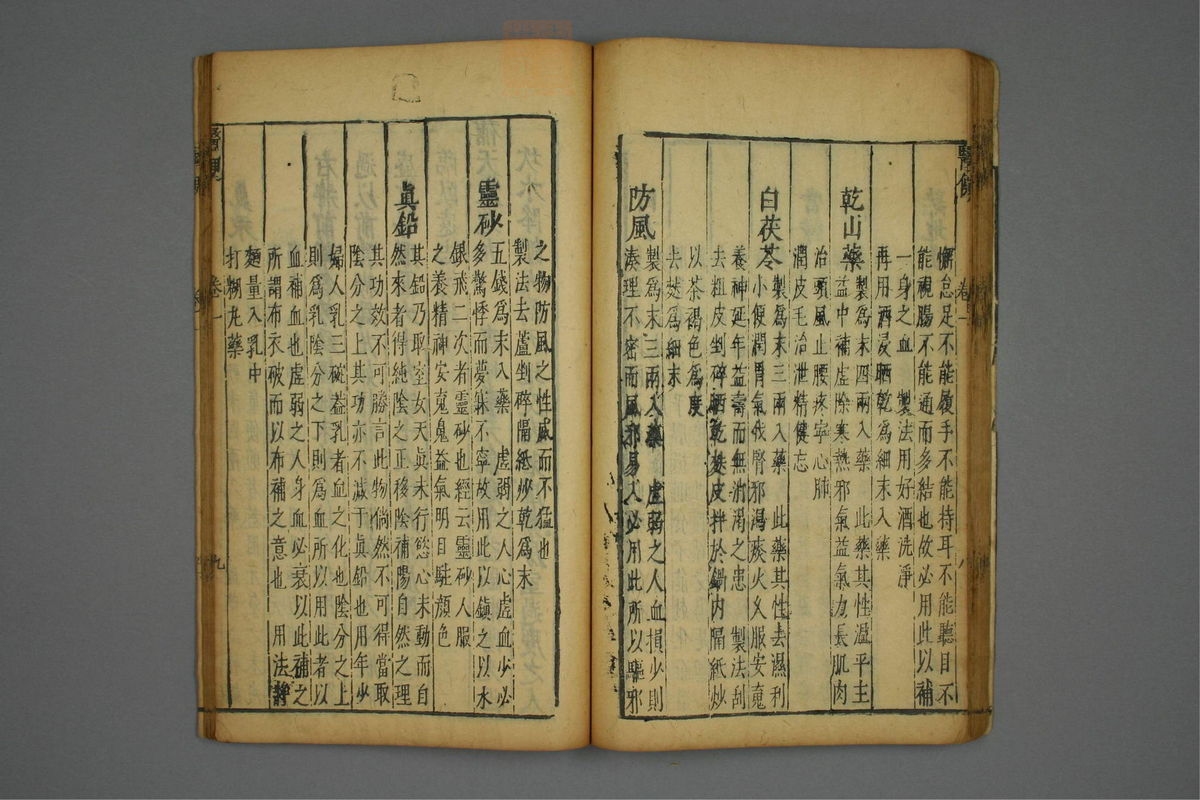 懈怠足不能履手不能持耳不能聽目不
能視腸不能通而多結也故必用此以補
一身之血　製法用好酒洗淨
再用酒浸晒乾為細末入藥
乾山藥製為末四兩入藥　此藥其性溫平主
益中補虛除寒熱邪氣益氣力長肌肉
治頭風止腰疼寧心肺
潤皮毛治泄精健忘
白茯苓製為末三兩入藥　此藥其性去濕利
小便潤胃氣伐腎邪瀉痰火乂服安䰟
養神延年益壽而無消渴之患　製法刮
去粗皮剉碎晒乾麸皮拌於鍋內隔紙炒
以茶褐色為度
去麸為細末
防風製為末三兩入藥　虛弱之人血損少則
湊理不密而風邪易入必用此所以驅邪
之物防風之性風而不猛也
製法去蘆剉碎隔紙炒乾為末
靈砂五錢為末入藥　虛弱之人心虛血少必
多驚悸而夢寐不寧故用此以鎮之以水
銀戒二次者靈砂也經云靈砂人服
之養精神安䰟魄益氣明目駐顏色
眞鉛其鉛乃取室女天眞未行慾心未動而自
然來者得純陰之正移陰補陽自然之理
其功效不可勝言此物倘然不可得當取
陰分之上其功亦不減于眞鉛也用年少
婦人乳三碗蓋乳者血之化也陰分之上
則為乳陰分之下則為血所以用此者以
血補血也虛弱之人身血必衰以此補之
所謂布衣破而以布補之意也　用法靜
麵量入乳中
打糊丸藥
卷一
八
卷一
九